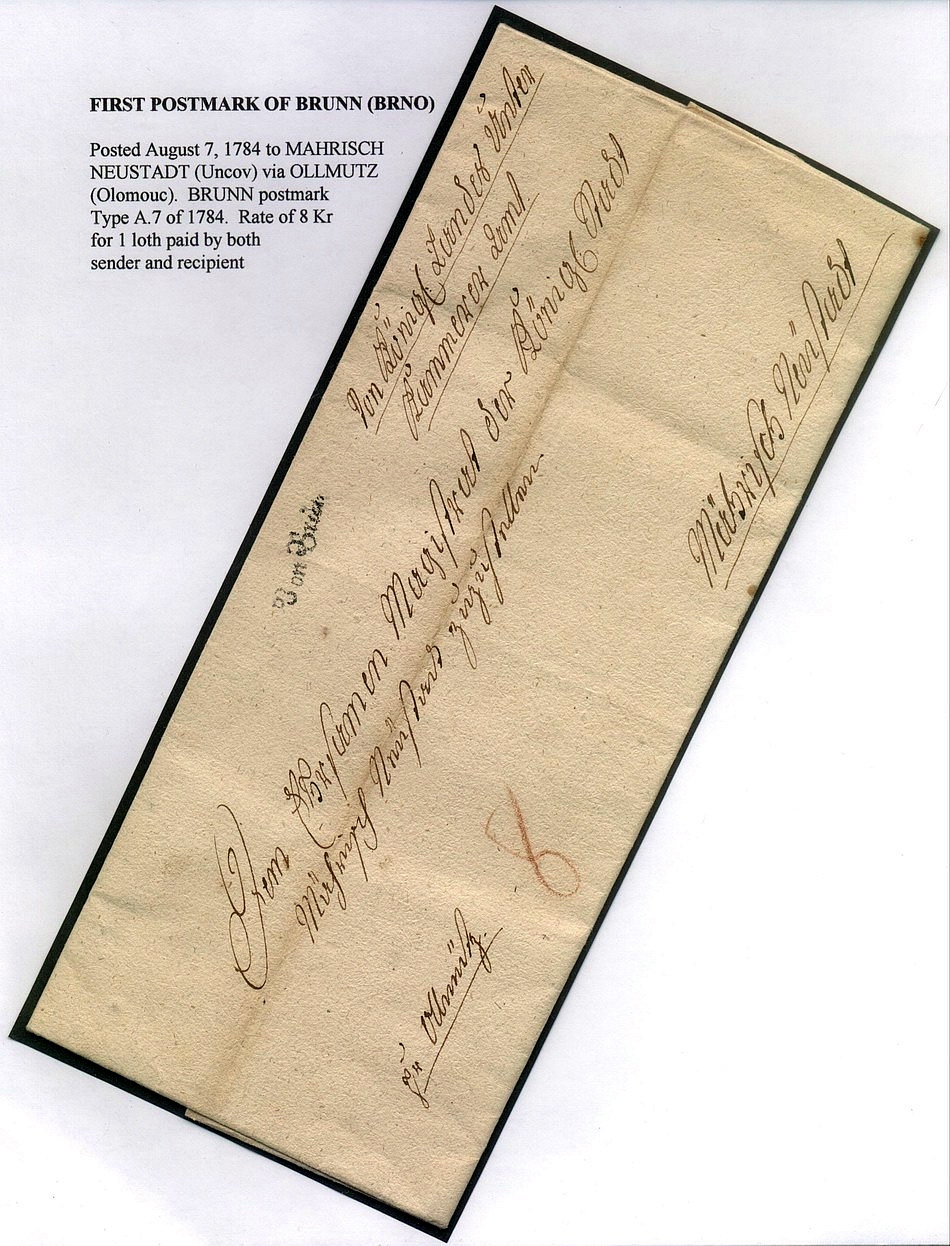 FIRST POSTMARK OF BRUNN (BRNO)
Posted August 7, 1784 to MAHRISCH
NEUSTADT (Uncov) via OLLMUTZ
(Olomouc). BRUNN postmark
Type A.7 of 1784. Rate of 8 Kr
for 1 loth paid by both
sender and recipient
Von Königl Landes Unter
Kammerer Aamt
Von Brün
Dem Ersamen Magistrat der Königl Stadt
Mährisch Neustadt zuzustellen.
8
Pr Ollmütz.
Mährisch Neüstadt